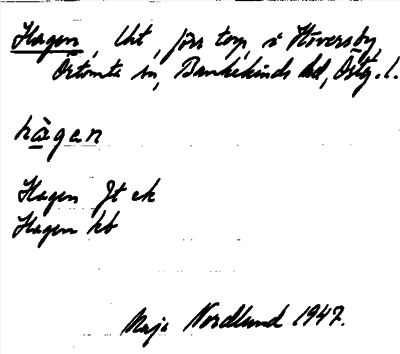 Hagen, lht, förr torp, i Höversby,
Örtomta sn, Bankekinds hd, Östg. l.
hàgen
Hagen Jt ek
Hagen kb
Maja Nordlund 1947.